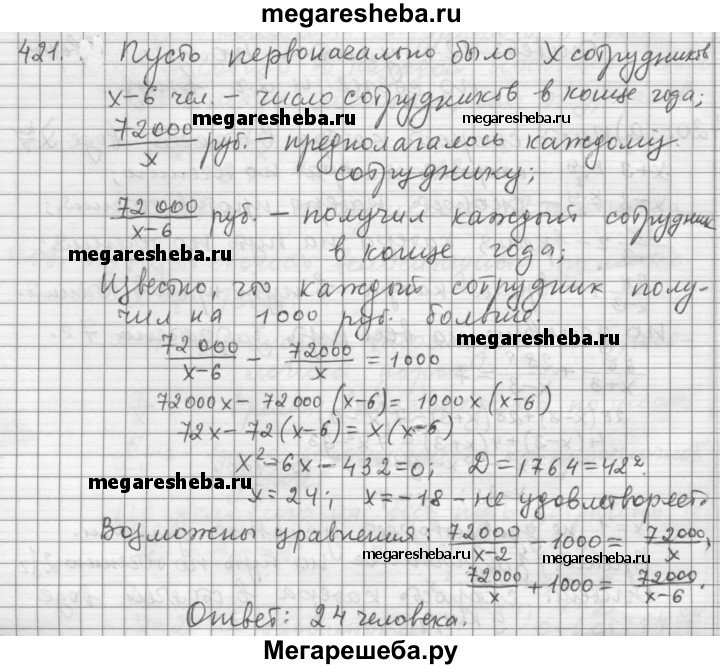 megaresheba.ru
421. Пусть первоначально было X сотрудников
x-6 чел. – число сотрудников в конце года;
megaresheba.ru megaresheba.ru
72000/x руб. – предполагалось каждому
сотруднику;
72000/x-6 руб. – получил каждый сотрудник
megaresheba.ru в конце года;
Известно, что каждый сотрудник полу-
чил на 1000 руб. больше.
megaresheba.ru
72000/x-6 - 72000/x = 1000
72000x - 72000(x-6) = 1000x(x-6)
72x - 72(x-6) = x(x-6)
x²-6x-432=0; D=1764=42².
megaresheba.ru
x=24; x=-18 - не удовлетворяет.
Возможны уравнения: 72000/x-2 - 1000 = 72000/x,
megaresheba.ru megaresheba.ru
72000/x + 1000 = 72000/x-6.
Ответ: 24 человека.
Мегарешеба.ру